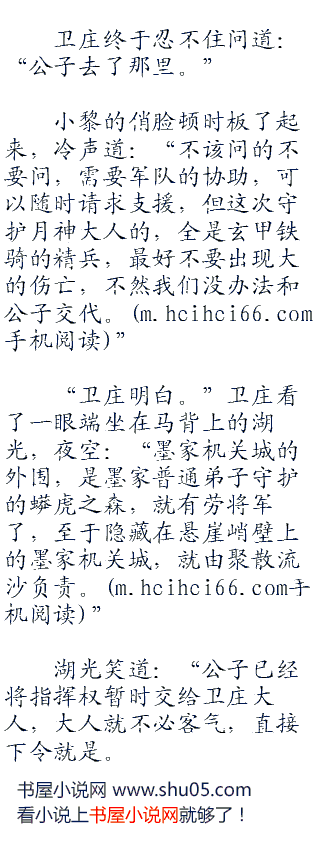 卫庄终于忍不住问道：
“公子去了那里。”
小黎的俏脸顿时板了起
来，冷声道：“不该问的不
要问，需要军队的协助，可
以随时请求支援，但这次守
护月神大人的，全是玄甲铁
骑的精兵，最好不要出现大
的伤亡，不然我们没办法和
公子交代。(m.hcihci66.com
手机阅读)”
“卫庄明白。”卫庄看
了一眼端坐在马背上的湖
光，夜空：“墨家机关城的
外围，是墨家普通弟子守护
的蟒虎之森，就有劳将军
了，至于隐藏在悬崖峭壁上
的墨家机关城，就由聚散流
沙负责。(m.hcihci66.com手
机阅读)”
湖光笑道：“公子已经
将指挥权暂时交给卫庄大
人，大人就不必客气，直接
下令就是。
书屋小说网 www.shu05.com
看小说上书屋小说网就够了！